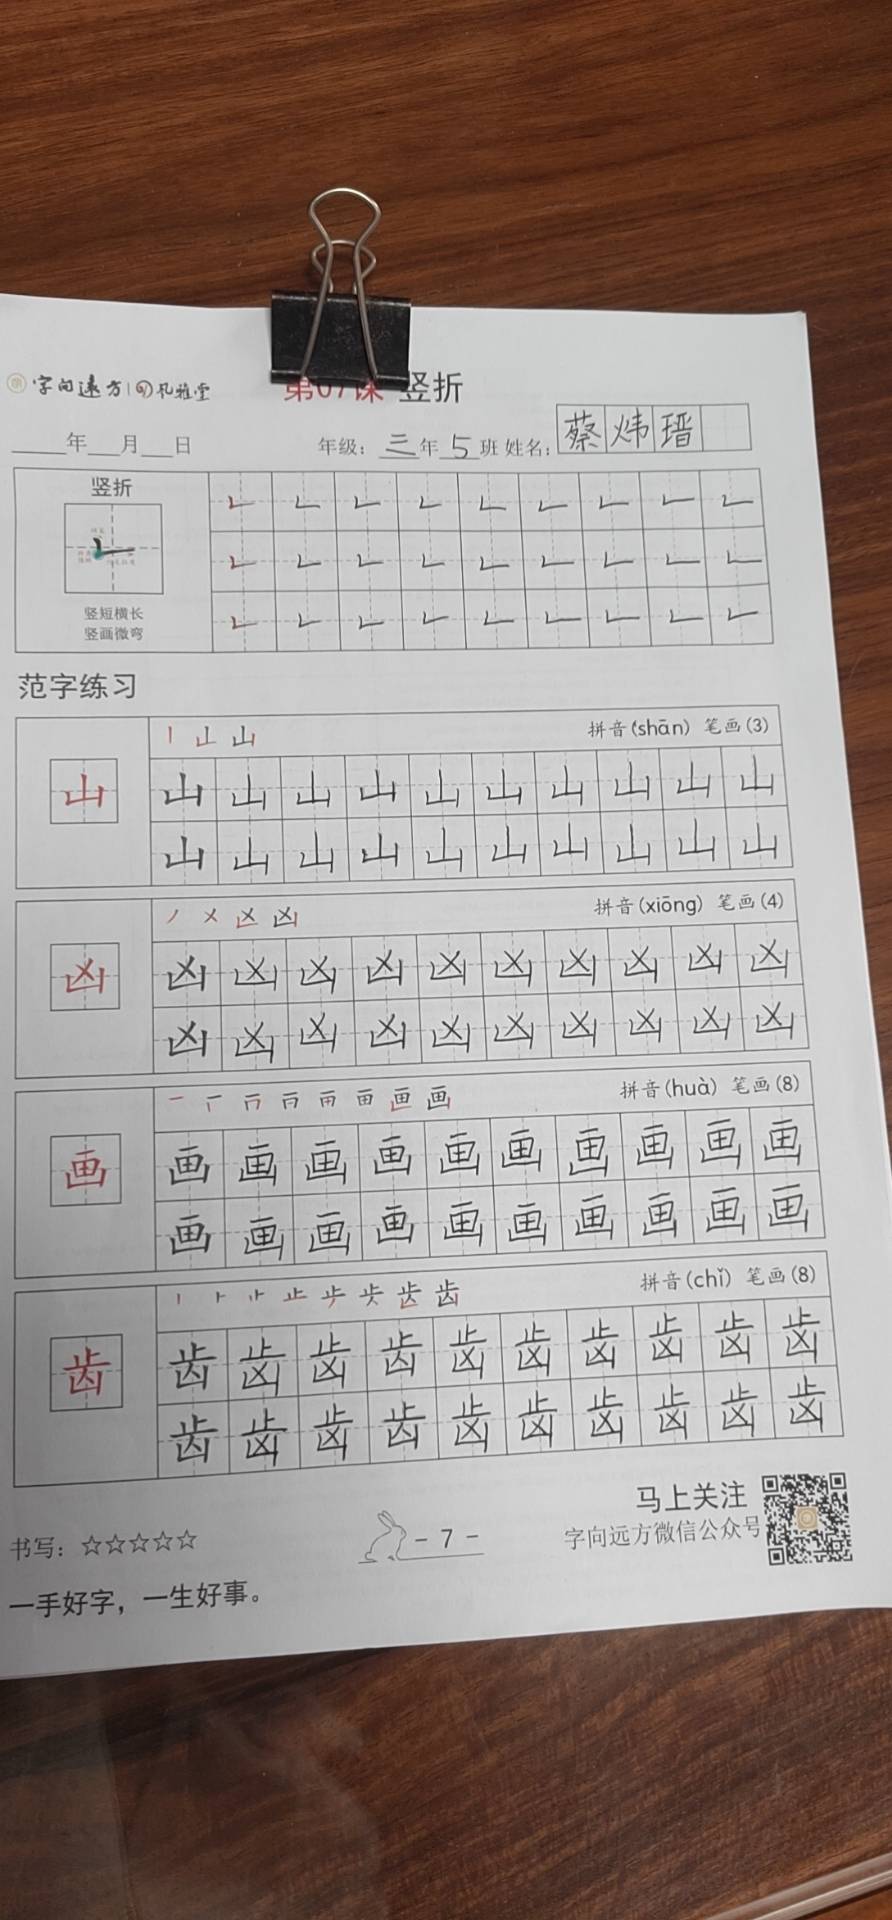 字向远方 孔雅堂
第07课 竖折
年 月 日 年级：三年5班 姓名：蔡炜瑨
竖折
竖短横长
竖画微弯
范字练习
拼音(shān) 笔画(3)
山 山 山 山 山 山 山 山 山 山 山
山 山 山 山 山 山 山 山 山 山
凶 拼音(xiōng) 笔画(4)
凶 凶 凶 凶 凶 凶 凶 凶 凶 凶 凶
凶 凶 凶 凶 凶 凶 凶 凶 凶 凶
画 拼音(huà) 笔画(8)
画 画 画 画 画 画 画 画 画 画 画
画 画 画 画 画 画 画 画 画 画
齿 拼音(chǐ) 笔画(8)
齿 齿 齿 齿 齿 齿 齿 齿 齿 齿 齿
齿 齿 齿 齿 齿 齿 齿 齿 齿 齿
马上关注
书写：☆☆☆☆☆ - 7 - 字向远方微信公众号
一手好字，一生好事。